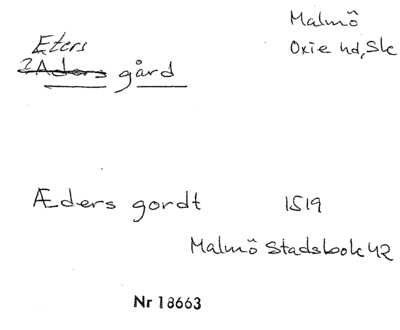 Malmö
Oxie hd, Sk
Eters
? Aders gård
Æders gordt 1519
Malmö Stadsbok 42
Nr 18663